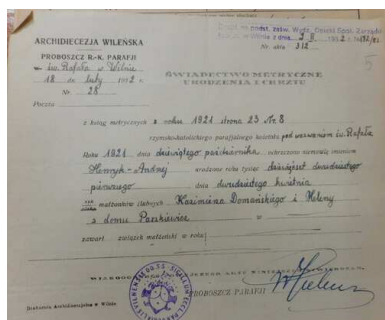 ARCHIDIECEZJA WILEŃSKA
PROBOSZCZ R.-K. PARAFJI
św. Rafała w Wilnie
18 dn luty 1942 r.
Nr. 28
Poczta
Nr aktu 312
5
ŚWIADECTWO METRYCZNE
URODZENIA I CHRZTU
z ksiąg metrycznych z roku 1921 strona 23 Nr. 8
rzymsko-katolickiego parafjalnego kościoła pod wezwaniem św. Rafała
Roku 1921 dnia dziewiątego października ochrzczono niemowlę imieniem
Henryk-Andrzej urodzone roku tysiąc dziewięćset dwudziestego
pierwszego dnia dwudziestego kwietnia
małżonków ślubnych Kazimierza Domańskiego i Heleny
z domu Paszkiewicz w
zawart związek małżeński w roku
PROBOSZCZ PARAFJI
Drukarnia Archidiecezjalna w Wilnie